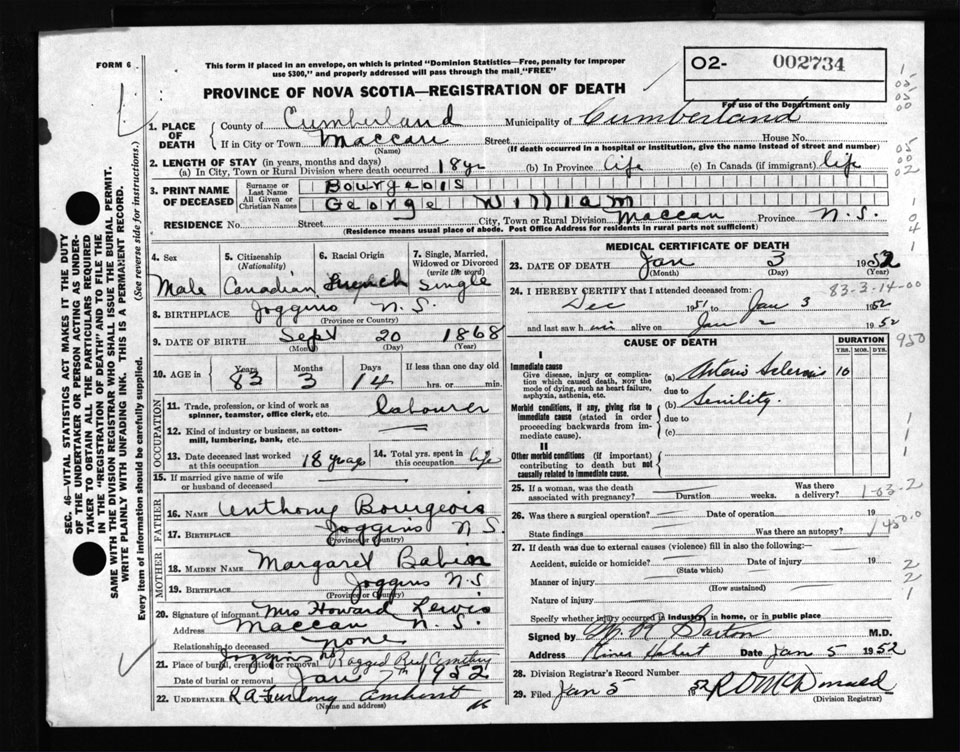 FORM 6
This form if placed in an envelope, on which is printed "Dominion Statistics—Free, penalty for improper
use $300," and properly addressed will pass through the mail "FREE"
02- 002734
For use of the Department only
PROVINCE OF NOVA SCOTIA—REGISTRATION OF DEATH
1. PLACE OF DEATH { County of Cumberland Municipality of Cumberland
If in City or Town Maccan Street House No.
(Name) (If death occurred in a hospital or institution, give the name instead of street and number)
2. LENGTH OF STAY (in years, months and days)
(a) In City, Town or Rural Division where death occurred 18 yr (b) In Province life (c) In Canada (if immigrant) life
3. PRINT NAME OF DECEASED { Surname or Last Name Bourgeois
All Given or Christian Names George William
RESIDENCE No. Street City, Town or Rural Division Maccan Province N.S.
(Residence means usual place of abode. Post Office Address for residents in rural parts not sufficient)
4. Sex 5. Citizenship (Nationality) 6. Racial Origin 7. Single, Married, Widowed or Divorced (write the word)
Male Canadian French Single
8. BIRTHPLACE Joggins N.S.
(Province or Country)
9. DATE OF BIRTH Sept 20 1868
(Month) (Day) (Year)
10. AGE in { Years Months Days If less than one day old
83 3 14 hrs. or min.
OCCUPATION
11. Trade, profession, or kind of work as spinner, teamster, office clerk, etc. labourer
12. Kind of industry or business, as cotton-mill, lumbering, bank, etc.
13. Date deceased last worked at this occupation 18 years 14. Total yrs. spent in this occupation life
15. If married give name of wife or husband of deceased
FATHER
16. NAME Anthony Bourgeois
17. BIRTHPLACE Joggins N.S.
(Province or Country)
MOTHER
18. MAIDEN NAME Margaret Babin
19. BIRTHPLACE Joggins N.S
(Province or Country)
20. Signature of informant Mrs Howard Lewis
Address Maccan N.S.
Relationship to deceased none
21. Place of burial, cremation or removal Joggins NS Ragged Reef Cemetery
Date of burial or removal Jan 7th 1952
22. UNDERTAKER R A Furlong Amherst
(Name and address)
MEDICAL CERTIFICATE OF DEATH
23. DATE OF DEATH Jan 3 1952
(Month) (Day) (Year)
24. I HEREBY CERTIFY that I attended deceased from: 83-3-14-00
Dec 1951 to Jan 3 1952
and last saw him alive on Jan 2 1952
CAUSE OF DEATH DURATION
YRS. MOS. DYS.
950
I
Immediate cause
Give disease, injury or complication which caused death, NOT the mode of dying, such as heart failure, asphyxia, asthenia, etc.
(a) Arterio Sclerosis 10
due to
Morbid conditions, if any, giving rise to immediate cause (stated in order proceeding backwards from immediate cause).
(b) Senility.
due to
(c)
II
Other morbid conditions (if important) contributing to death but not causally related to immediate cause.
25. If a woman, was the death associated with pregnancy? Duration weeks. Was there a delivery? 1-03-2
26. Was there a surgical operation? Date of operation 19
State findings Was there an autopsy? 450.0
27. If death was due to external causes (violence) fill in also the following:—
Accident, suicide or homicide? Date of injury 19
(State which)
Manner of injury
(How sustained)
Nature of injury
Specify whether injury occurred in industry, in home, or in public place
Signed by M. R Barton M.D.
Address River Hebert Date Jan 5 1952
28. Division Registrar's Record Number
29. Filed Jan 5 1952 R D McDonald
(Division Registrar)
SEC. 46—VITAL STATISTICS ACT MAKES IT THE DUTY
OF THE UNDERTAKER OR PERSON ACTING AS UNDER-
TAKER TO OBTAIN ALL THE PARTICULARS REQUIRED
IN THE "REGISTRATION OF DEATH" AND TO FILE THE
SAME WITH THE DIVISION REGISTRAR WHO SHALL ISSUE THE BURIAL PERMIT.
WRITE PLAINLY WITH UNFADING INK. THIS IS A PERMANENT RECORD.
Every item of information should be carefully supplied. (See reverse side for instructions.)